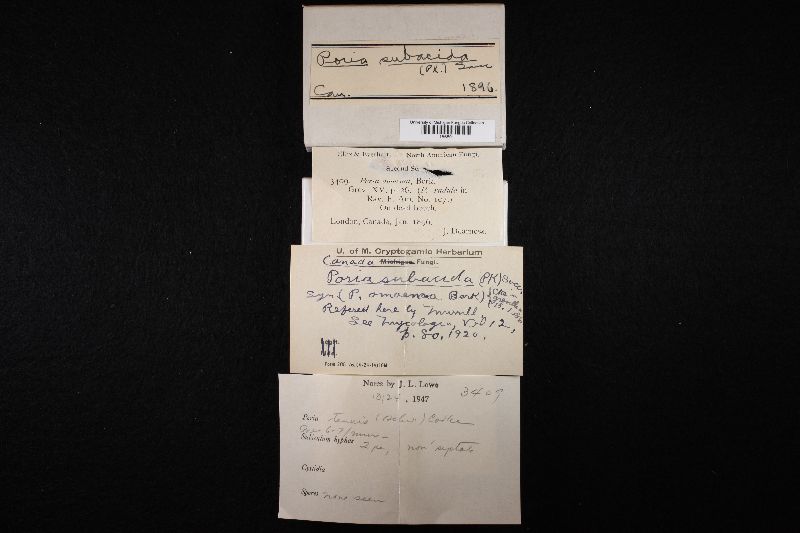 Poria subacida
(Pk.) Sacc
Can. 1896.
University of Michigan Fungus Collection
Ellis & Everhart. North American Fungi.
Second Se
3409. Poria omaema, Berk.
Grev. XV, p. 26. (P. radula in
Rav. F. Am. No. 107.)
On dead beech.
London, Canada, Jan. 1896.
J. Dearness.
U. of M. Cryptogamic Herbarium
Canada Michigan Fungi.
Poria subacida (Pk) Sacc.
Syn (P. omaema Berk)
Refered here by Murrill
See Mycologia, Vol 12,
p. 80, 1920.
Notes by J. L. Lowe 3409
10/24, 1947
Poria tenuis (Schw.) Cooke
6-7/mm
Subiculum hyphae 2 µ, non septate
Cystidia
Spores none seen